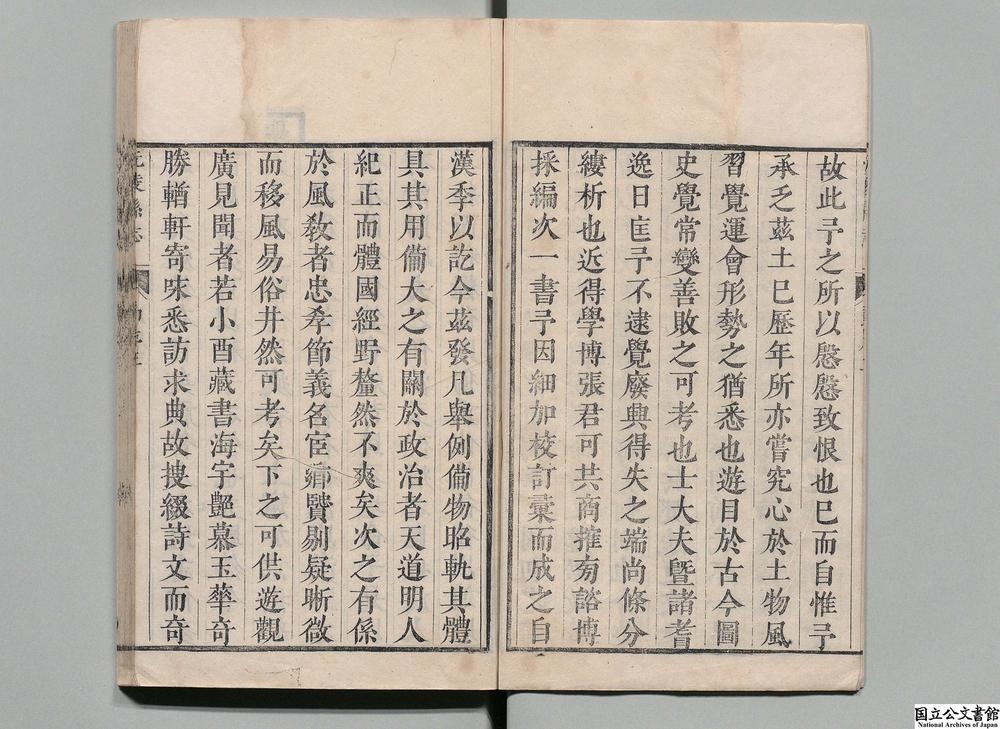 故此予之所以慇慇致恨也已而自惟予
承乏茲土已歷年所亦嘗究心於土物風
習覺運會形勢之猶悉也遊目於古今圖
史覺常變善敗之可考也士大夫暨諸耆
逸日匡予不逮覺廢興得失之端尚條分
縷析也近得學博張君可共商搉旁諮博
採編次一書予因細加校訂彙而成之自
漢季以訖今茲發凡舉例備物昭軌其體
具其用備大之有關於政治者天道明人
紀正而體國經野釐然不爽矣次之有係
於風敎者忠孝節義名宦鄉賢剔疑晰微
而移風易俗井然可考矣下之可供遊觀
廣見聞者若小酉藏書海宇艷慕玉華奇
勝輶軒寄味悉訪求典故搜綴詩文而奇
沅陵縣志
国立公文書館
National Archives of Japan